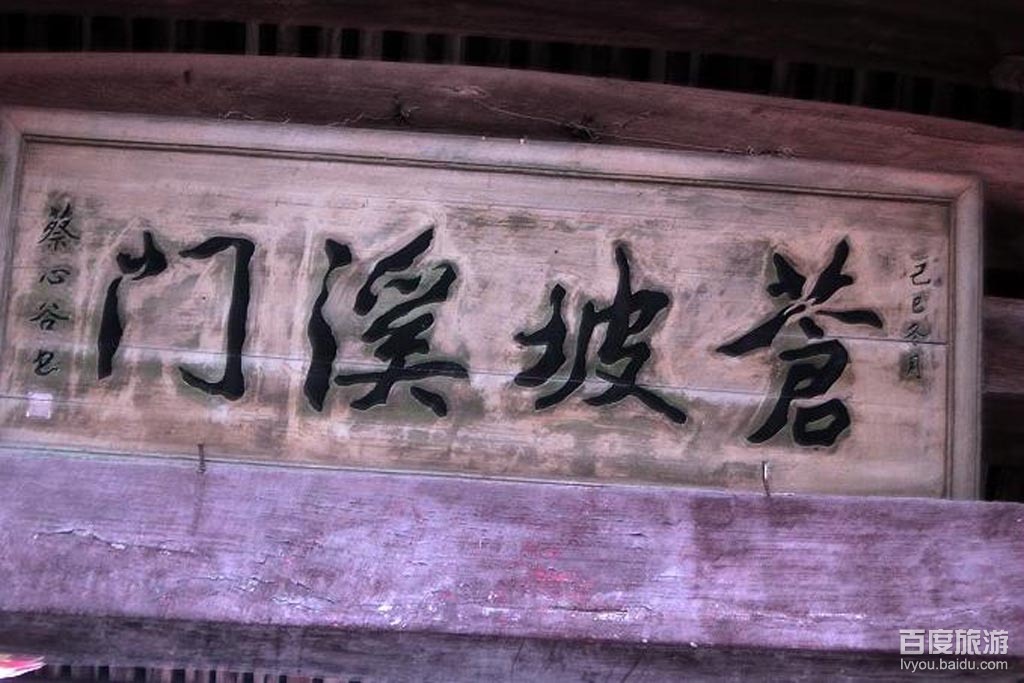 己巳冬月
蒼坡溪门
蔡心谷书
百度旅游
lvyou.baidu.com